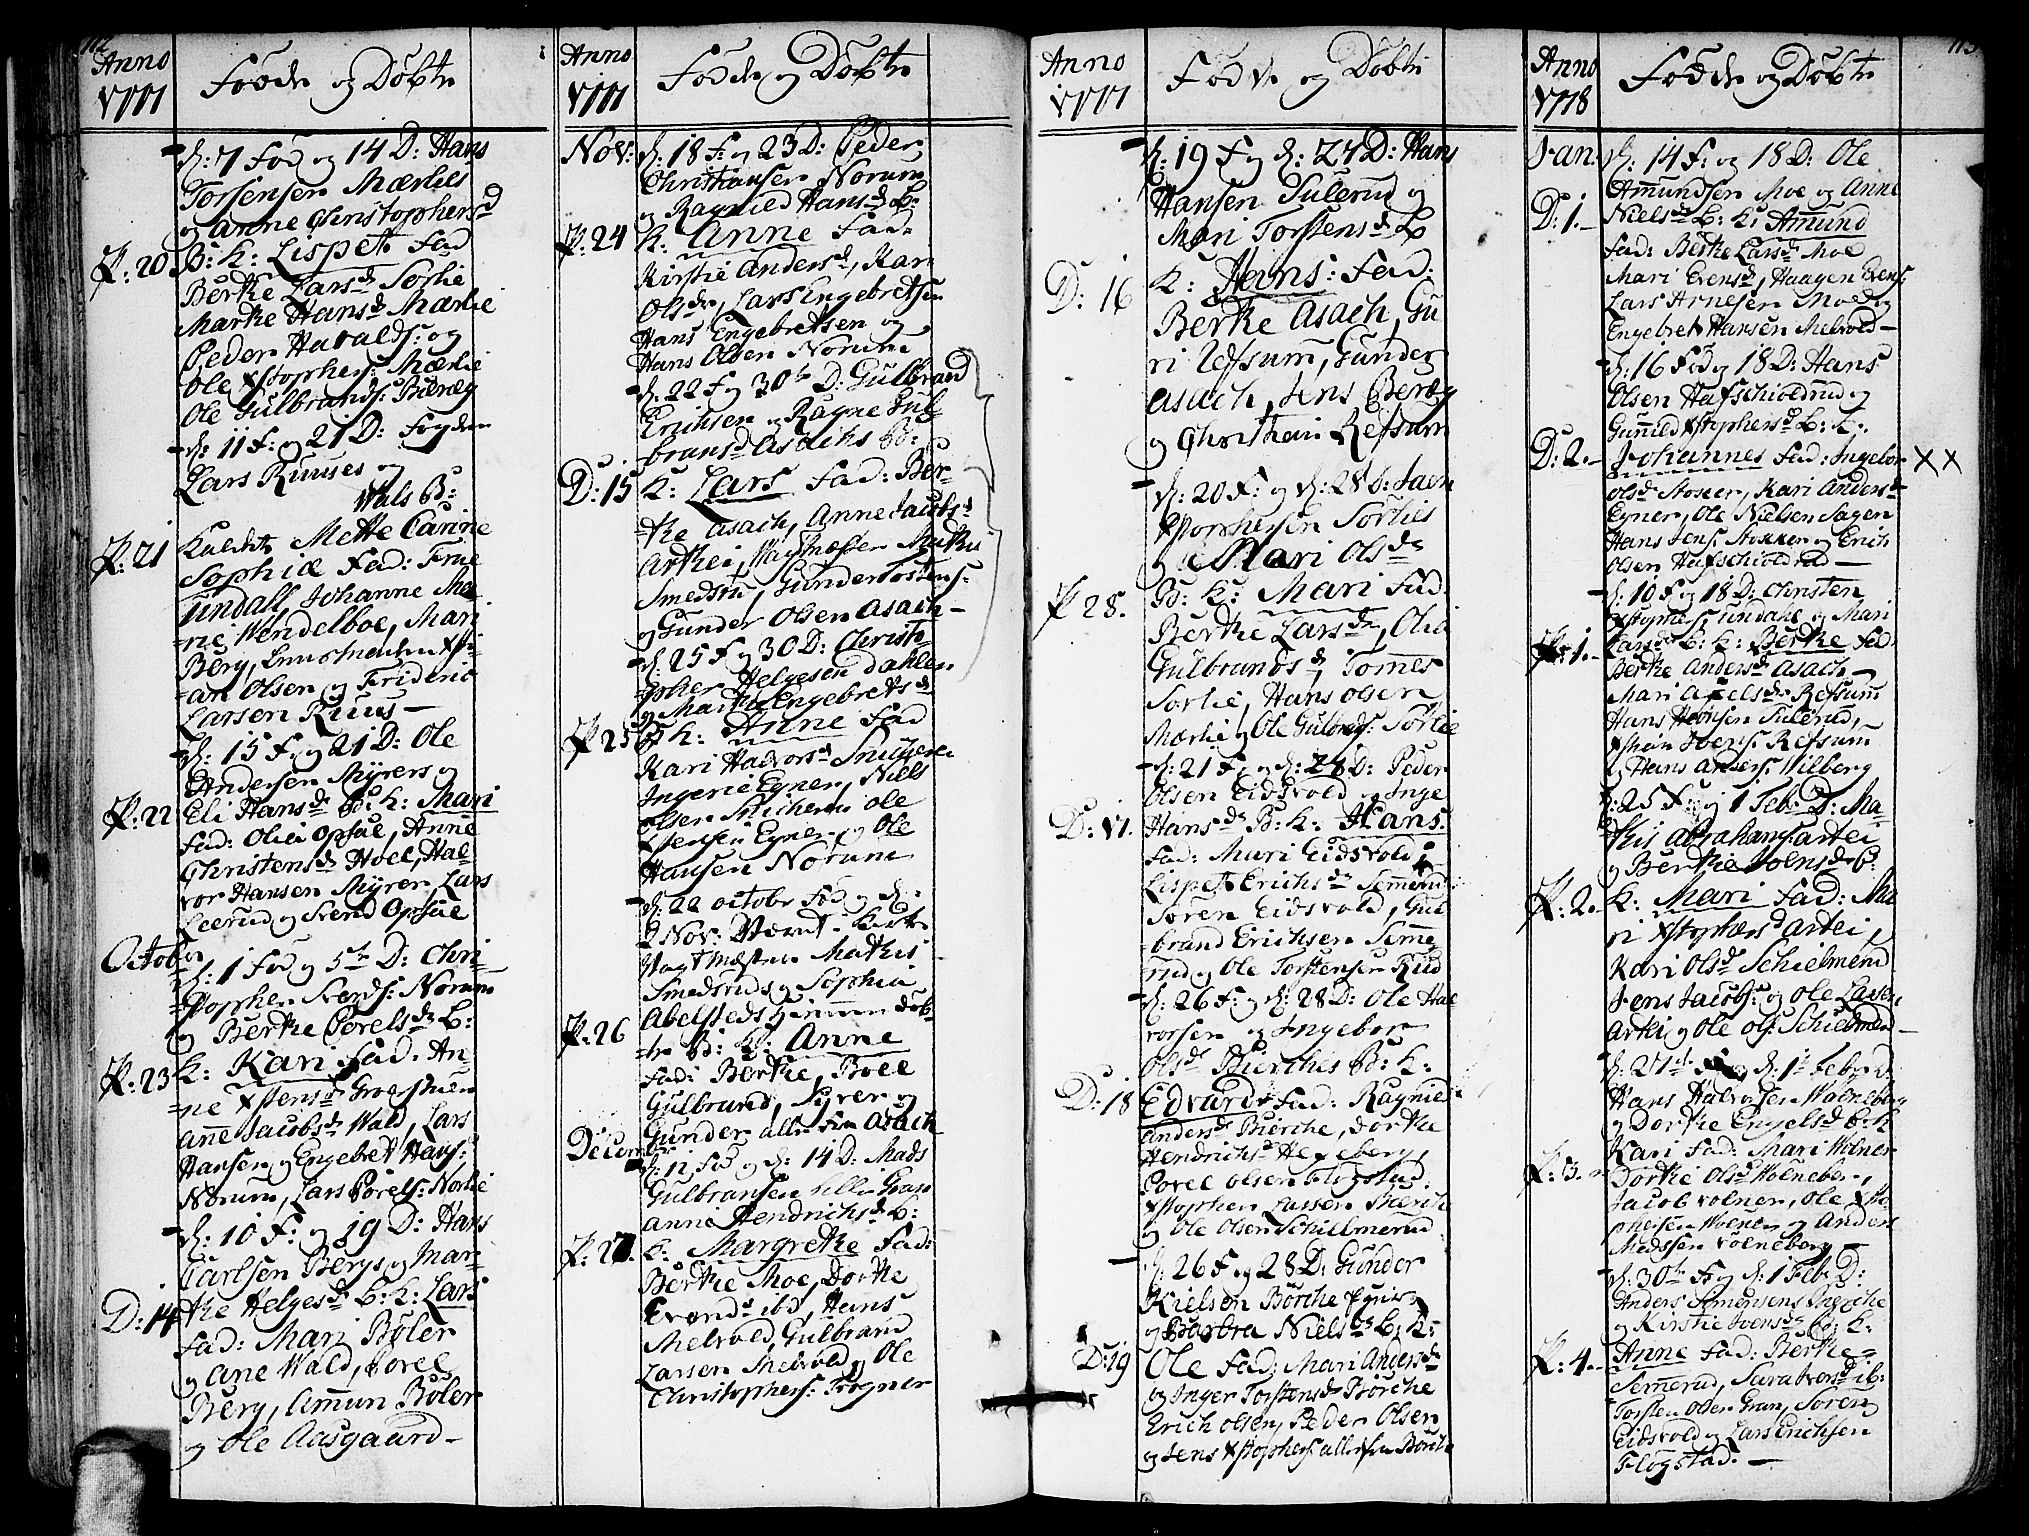 112
Anno
1777
Fødde og Døbte
d: 7 Fød og 14 D: Hans
Torsensen Mærlies
og Anne Christophersd
P: 20 B: K: Lispet Fad
Berthe Larsd Sørlie
Marthe Hansd Mærlie
Peder Havalds: og
Ole Xstophers: Mærlie
Ole Gulbrands: Bieræg
d: 11 F: og 21 D: Fogden
Lars Ruuses og
Wals B:
P: 21 Kaldet Mette Carine
Sophie Fad: Frue
Tindall, Johanne Ma
=rie Wendelboe, Mari
Berg,
=an Olsen og Frideric
Larsen Ruus —
d: 15 F: og 21 D: Ole
Andersen Myrers og
P: 22 Eli Hansd B: K: Mari
Fad: Olia Opsal, Anne
Christensd Hoel, Hal=
vor Hansen Myrer, Lars
Leerud og Svend Opsal
October
d: 1 Fød og 5te D: Chri=
stopher Svends: Norum
og Berthe Povelsd B:
P: 23 K: Kari Fad: An=
=ne Xstensd Groestuen
Anne Jacobsd Wald, Lars
Hansen og Engebret Hans:
Norum, Lars Povels: Norlie
d: 10 F: og 19 D: Hans
Carlsen Bergs og Mar=
D: 14 the Helgesd B: K: Lars
Fad: Mari Bøler
og Ane Wald, Povel
Berg, Amun Bøler
og Ole Aasgaard —
Anno
1777
Fødde og Døbte
Nov: d: 18 F: og 23 D: Peder
Christiansen Norum
og Ragnild Hansd B:
P: 24 K: Anne Fad:
Kirstie Andersd, Kari
Olsdr, Lars Engebretsen
Hans Engebretsen og
Hans Olsen Norum
d: 22 F og 30te D: Gulbrand
Erichsen og Ragne Gul=
bransd Asachs B:
D: 15 K: Lars Fad: Ber=
=the Asach, Anne Jacobsd
Arthei, Mathis
Smedsrud, Gunder Tostens:
og Gunder Olsen Asach —
d: 25 F og 30 D: Christ=
=opher Helgesen Dahlen
og Marthe Engebretsd
P: 25 B: K: Anne Fad
Kari Halvorsd
Ingerie Egner, Niels
Olsen Ole
Jensen Egner og Ole
Hansen Norum
d: 22 octobr Fød og d:
2 Nov:
Mathis
Smedsruds og Sophia
Abelsteds hiemme døb=
P: 26 =te B: K: Anne
Fad: Berthe, Boel
Gulbrand, Syver og
Gunder alle fra Asach
December
d: 11 Fød og d: 14 D: Mads
Gulbransen
Anne Hendrichsd B:
P: 27. K: Margrethe Fad:
Berthe Moe, Dorthe
Evensd ibd, Hans
Melvold, Gulbrand
Larsen Melvold og Ole
Christophers: Trogner
Anno
1777
Fødde og Døbte
d: 19 F og d: 24 D: Hans
Hansen Tulerud og
Mari Torstensd B
D: 16 K: Hans: Fad:
Berthe Asach, Gu
ri Refsum, Gunder
Asach, Jens Beræg
og Christian Refsum
d: 20 F: og d: 28 D: Jacn
Xstophersen Sørlies
og Mari Olsdr
P 28. B: K: Mari Fad:
Berthe Larsdr, Olia
Gulbrandsd, Tomes
Sørlie, Hans Olsen
Mærlie og Ole Gulbrs: Sørlie
d: 21 F: og d: 28 D: Peder
Olsen Eidsvold og Inge
D: 17. Hansdr B: K: Hans.
Fad: Mari Eidsvold
Lispet Erichsdr Semerud
Søren Eidsvold, Gul
=brand Erichsen Seme
rud og Ole Torstensen Rud
d: 26 F: og d: 28 D: Ole Hal
vorsen og Ingebor
Olsdr Bierches B: K:
D: 18 Edvard Fad: Ragnild
Andersd Bierche, Dorthe
Hendrichsd Hexeberg,
Povel Olsen Flogstad
Xstopher Larsen Bierche
og Ole Olsen Schillmerud
d: 26 F og 28 D: Gunder
Nielsen Børche
og Barbra Nielsd B: K:
D: 19 Ole Fad: Mari Andersd
og Inger Torstensd Børche
Erich Olsen, Peder Olsen
og Jens Xstophers: alle fra Børche
113
Anno
1778
Fødde og Døbte
Jan: d: 14 F: og 18 D: Ole
Amundsen Moe og Anne
D: 1.— Nielsd B: K: Amund
Fad: Berthe Larsd Moe
Mari Evensd, Haagen Evens:
Lars Arnesen Moe og
Engebret Hansen Melvold —
d: 16 Fød og 18 D: Hans
Olsen Hafschioldrud og
Gunild Xstophersd B: K:
D: 2.— Johannes Fad: Ingebor XX
Olsd Stocker, Kari Andersd
Egner, Ole Nielsen Sagen
Hans Jens: Stokker og Erich
Olsen Hafschioldrud —
d: 10 F og 18 D: Christen
Xstophers: Tundahl og Mari
P: 1.— Larsd B: K: Berthe Fad:
Berthe Andersd Asach —
Mari Axelsd Refsum
Hans Hansen Tulerud, —
Xstian Joens: Refsum
og Hans Anders: Wilberg
d: 25 F: og 1 Feb: D: Ma=
this Abrahams: Artei
og Berthe Joensd B:
P: 2.— K: Mari Fad: Ma
ri Xstophersd Artei,
Kari Olsd Schielmerud
Jens Jacobs: og Ole Larsen
Artei og Ole Ols: Schielmerud —
d: 27de F og d: 1te Febr: D
Hans Halvorsen Wolneberg
og Dorthe Engelsd B: K
P: 3.— Kari Fad: Mari Wolner
Dorthe Olsd Wolneberg,
Jacob Volner, Ole Xsto
phersen Wolner og Anders
Madssen Volneberg —
d: 30te F: og d: 1 Feb: D:
Anders Simensens
og Kirstie Joensd B: K:
P: 4.— Anne Fad: Berthe
Semerud, Sara Ivarsd ib:
Torsten Olsen Gran, Søren
Eidsvold og Lars Erichsen
Flogstad. —